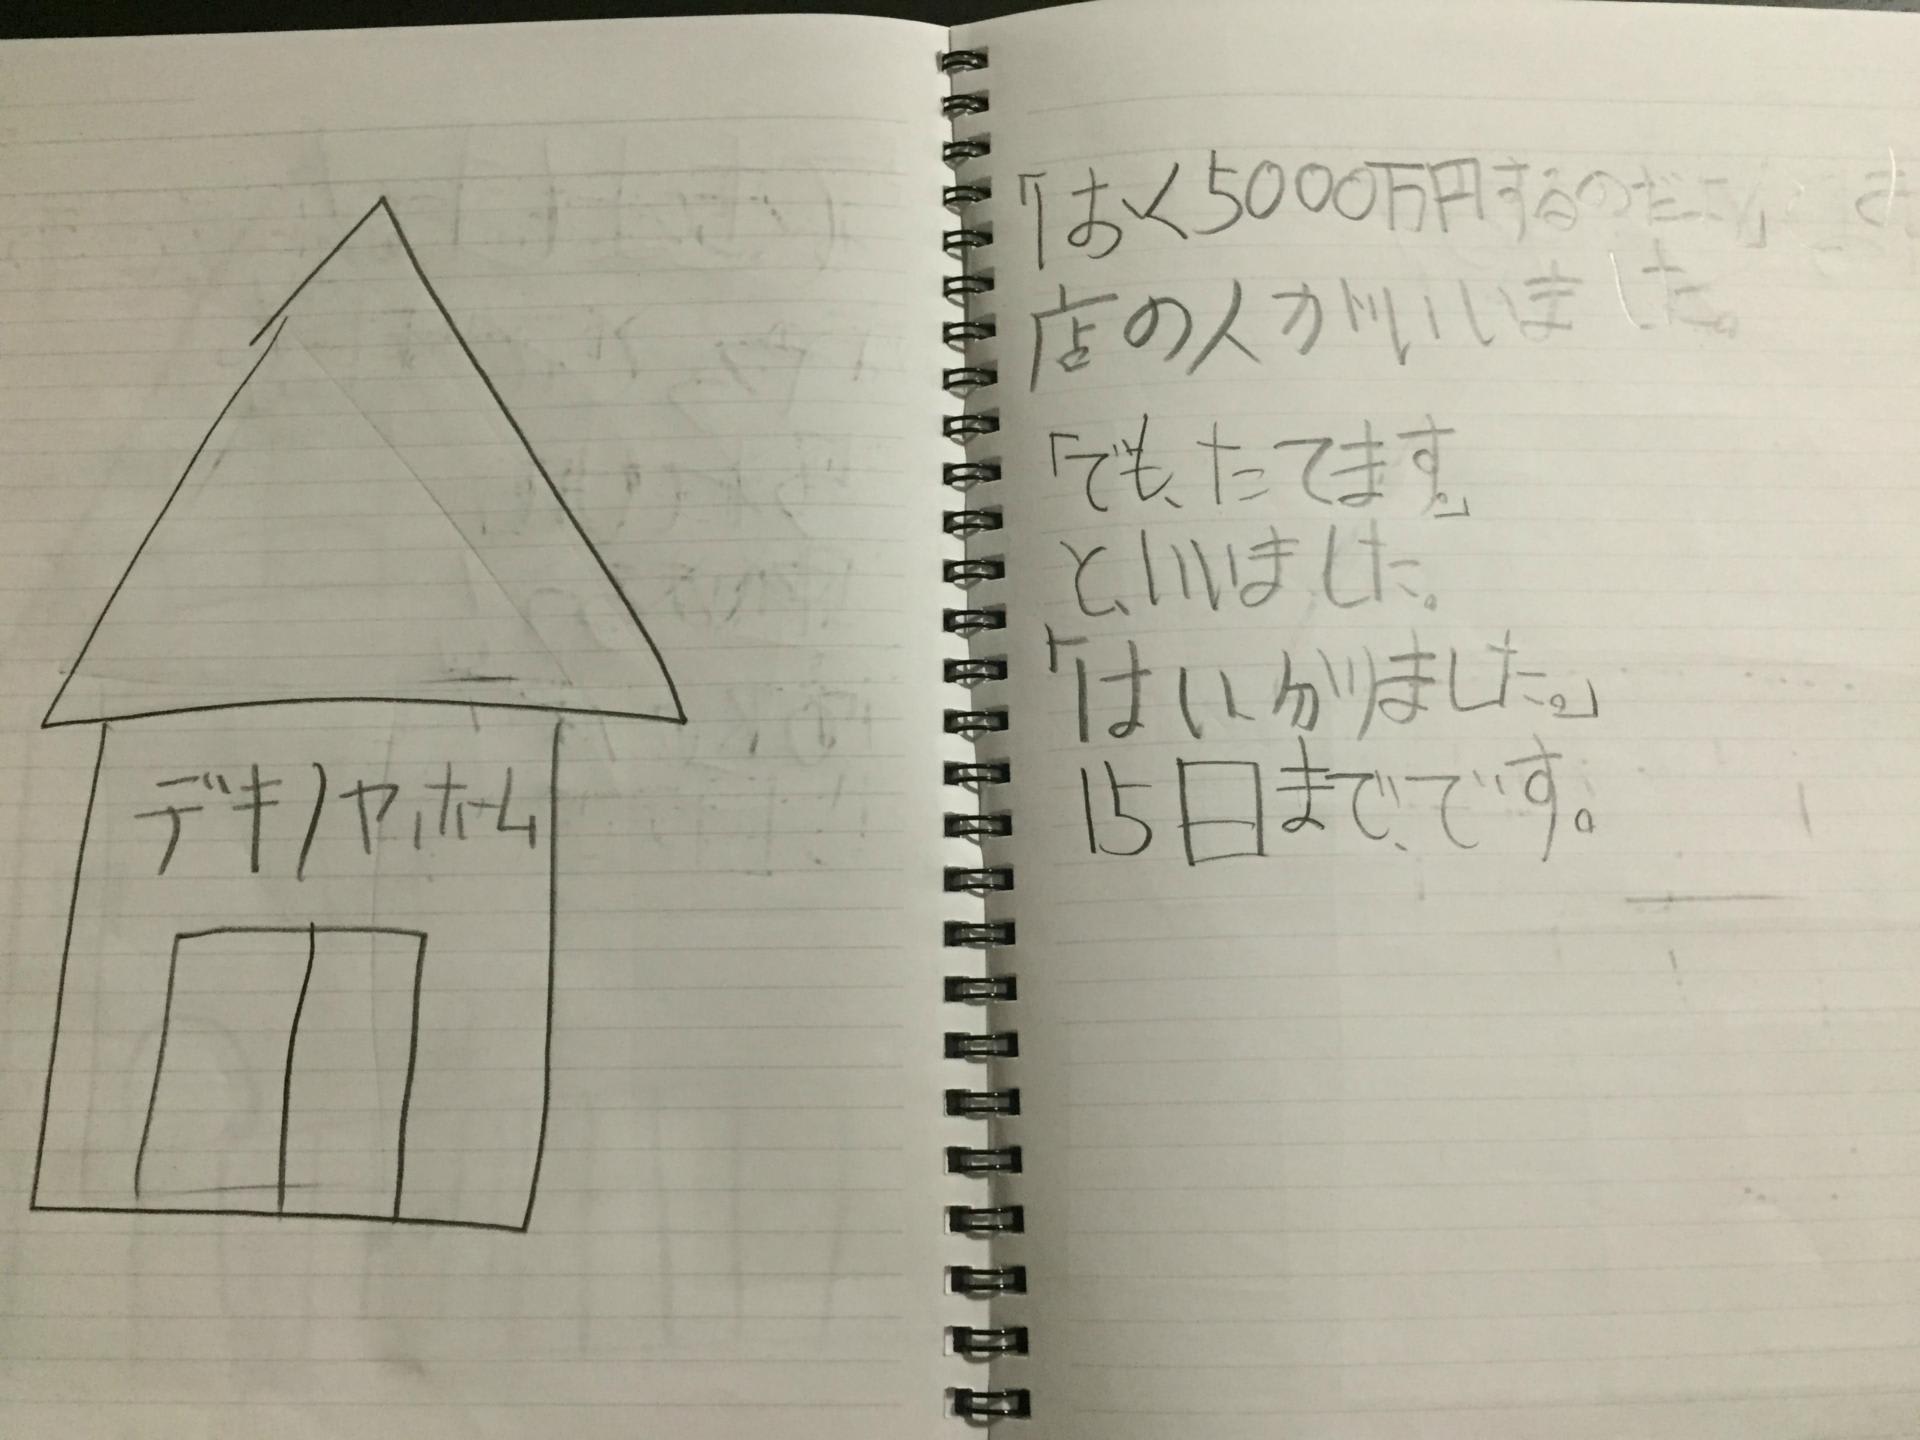 デキノヤホーム
「おく5000万円するのだ」
店の人がいいました。
「でも、たてます。」
と、いいました。
「はい、分りました。」
15日までです。